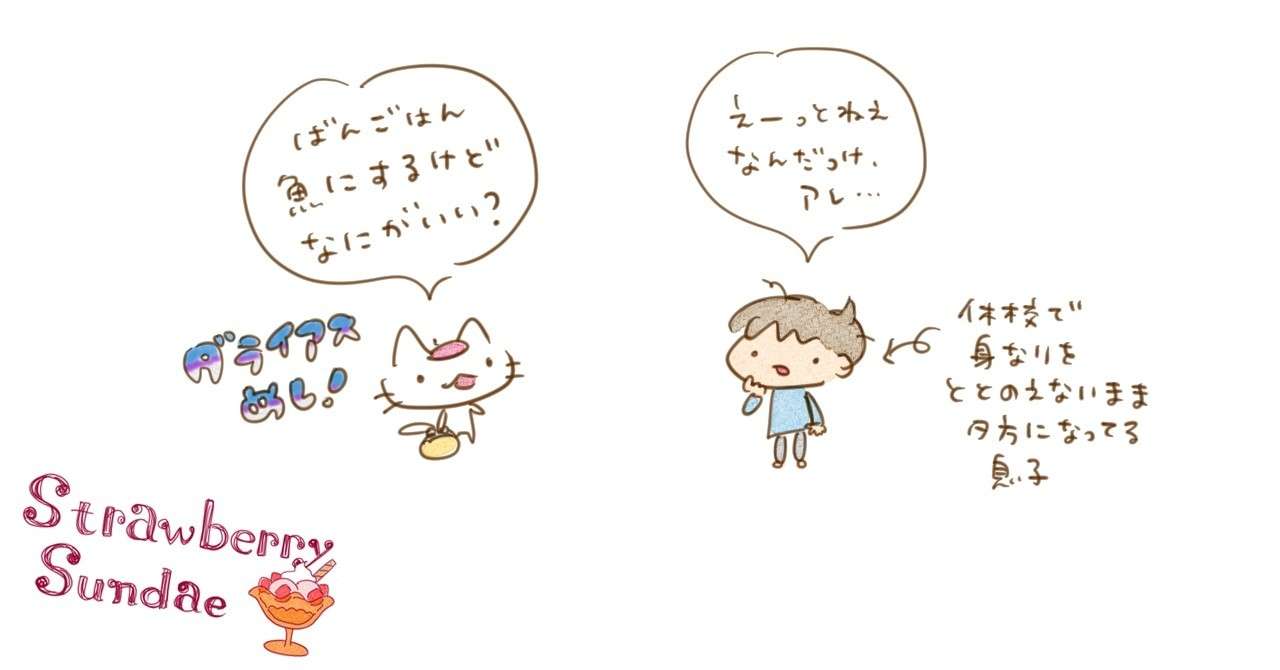 ばんごはん
魚にするけど
なにがいい?
えーっとねえ
なんだっけ、
アレ…
ダライアス
めし!
休校で
身なりを
ととのえないまま
夕方になってる
息子
Strawberry
Sundae